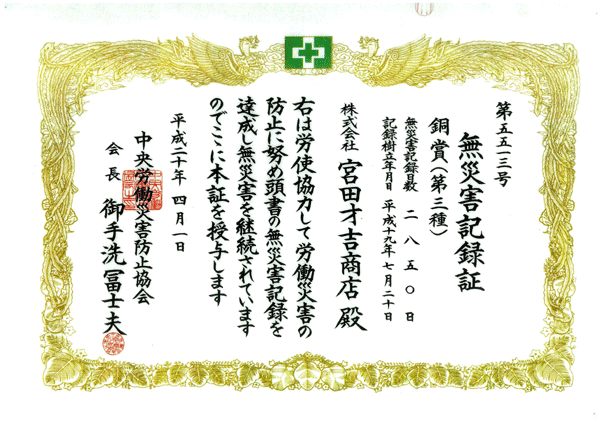 第五五一三号
無災害記録証
銅賞(第三種)
無災害記録日数 二八五〇日
記録樹立年月日 平成十九年七月二十日
株式会社 宮田才吉商店 殿
右は労使協力して労働災害の
防止に努め頭書の無災害記録を
達成し無災害を継続されています
のでここに本証を授与します
平成二十年四月一日
中央労働災害防止協会
会長 御手洗冨士夫